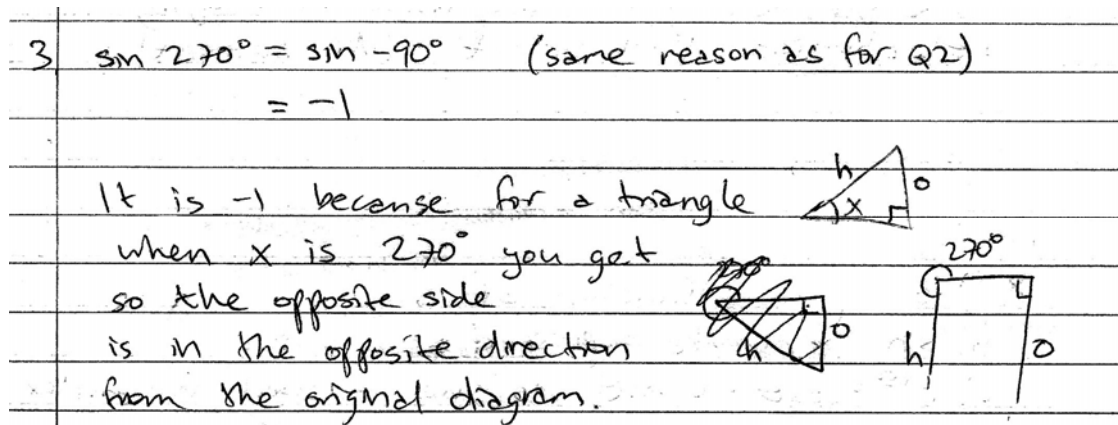 3 sin 270° = sin -90° (same reason as for Q2)
= -1
It is -1 because for a triangle h o x
when x is 270° you get 270°
so the opposite side
is in the opposite direction o h h o
from the original diagram.